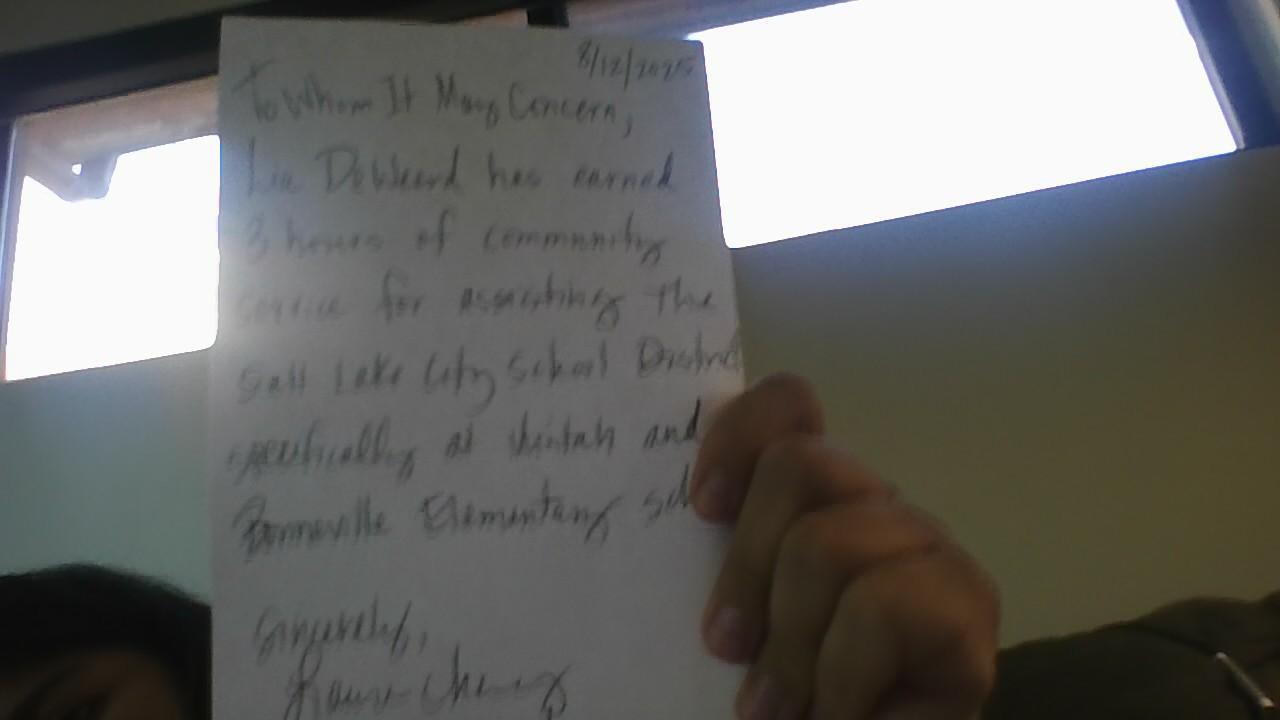 8/12/2025
To Whom It May Concern,
DeWeerd has earned
3 hours of community
service for assisting the
Salt Lake City School District
specifically at Uintah and
Bonneville Elementary sch
Sincerely,